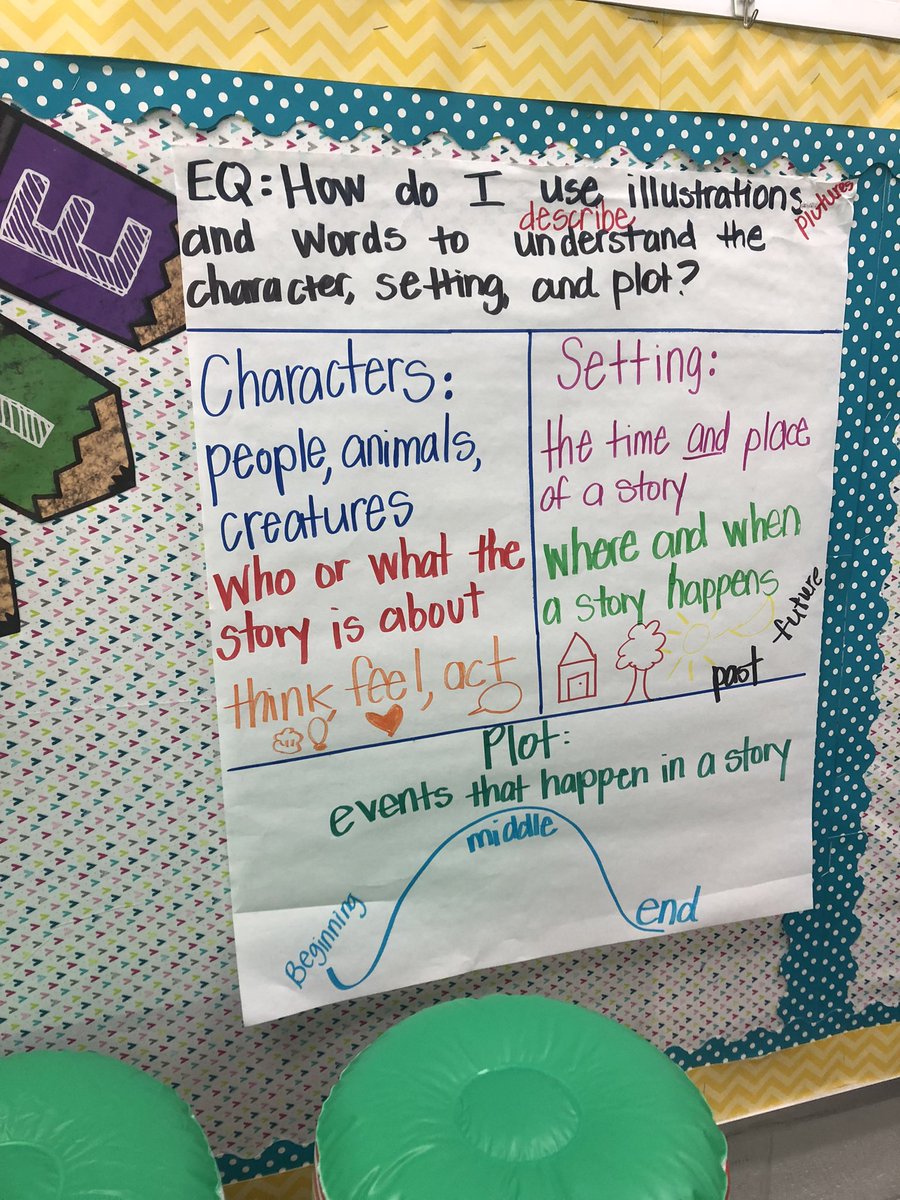 E
EQ: How do I use illustrations
pictures
describe
and words to understand the
character, setting, and plot?
Characters:
people, animals,
creatures
who or what the
story is about
think feel, act
Setting:
the time and place
of a story
where and when
a story happens
past
future
Plot:
events that happen in a story
Beginning
middle
end